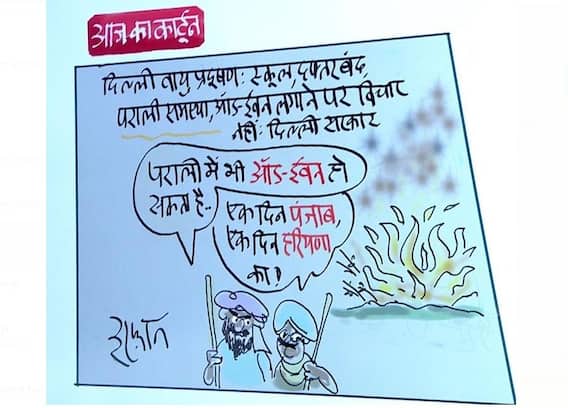 आज का कार्टून
दिल्ली वायु प्रदूषण: स्कूल, दफ्तर बंद,
पराली समस्या, ऑड-ईवन लगाने पर विचार
नहीं: दिल्ली सरकार
पराली में भी ऑड-ईवन हो
सकता है..
एक दिन पंजाब,
एक दिन हरियाणा
का!
इरफ़ान